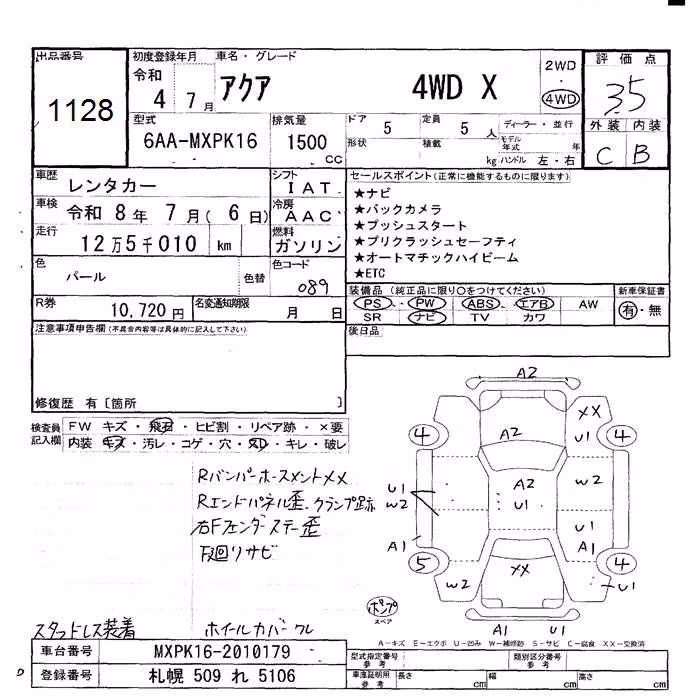 出品番号
1128
初度登録年月
令和
4 7月
車名・グレード
アクア 4WD X
2WD
・
4WD
評価点
35
外装 内装
C B
型式
6AA-MXPK16
排気量
1500
CC
ドア
5
定員
5人
形状
積載
kg
ディーラー・並行
モデル年式 年
ハンドル 左・右
車歴
レンタカー
シフト
IAT
車検
令和 8年 7月( 6日)
冷房
AAC
走行
12万5千010 km
燃料
ガソリン
色
パール
色替
色コード
089
R券
10,720円
名変通知期限
月 日
セールスポイント(正常に機能するものに限ります)
★ナビ
★バックカメラ
★プッシュスタート
★プリクラッシュセーフティ
★オートマチックハイビーム
★ETC
装備品(純正品に限り○をつけてください)
PS・PW ABS・エアB AW
SR ナビ TV カワ
新車保証書
有・無
後日品
注意事項申告欄(不具合内容等は具体的に記入して下さい)
修復歴 有〔箇所 〕
検査員記入欄
FW キズ・飛石・ヒビ割・リペア跡・×要
内装 キズ・汚レ・コゲ・穴・スレ・キレ・破レ
Rバンパーホースメントメメ
Rエンドパネル歪 クランプ跡
右Fフェンダーステー歪
下廻りサビ
スタッドレス装着
ホイールカバークレ
A2
XX
4
A2
U1
4
U1
W2
A2
U1
W2
U1
A1
A1
5
4
W2
XX
U1
ポンプ
スペア
A1
U1
A-キズ E-エクボ U-凹み W-補修跡 S-サビ C-腐食 XX-交換済
車台番号
MXPK16-2010179
登録番号
札幌 509 れ 5106
型式指定番号
参考
類別区分番号
参考
車庫証明用
参考
長さ cm
幅 cm
高さ cm
D